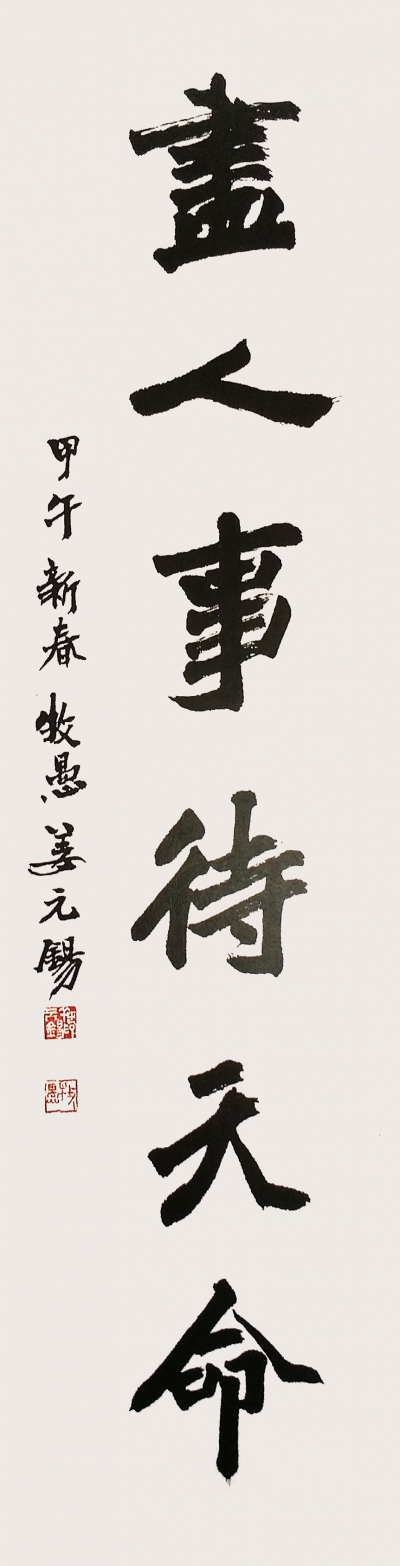 盡人事待天命
甲午新春 牧愚姜元錫